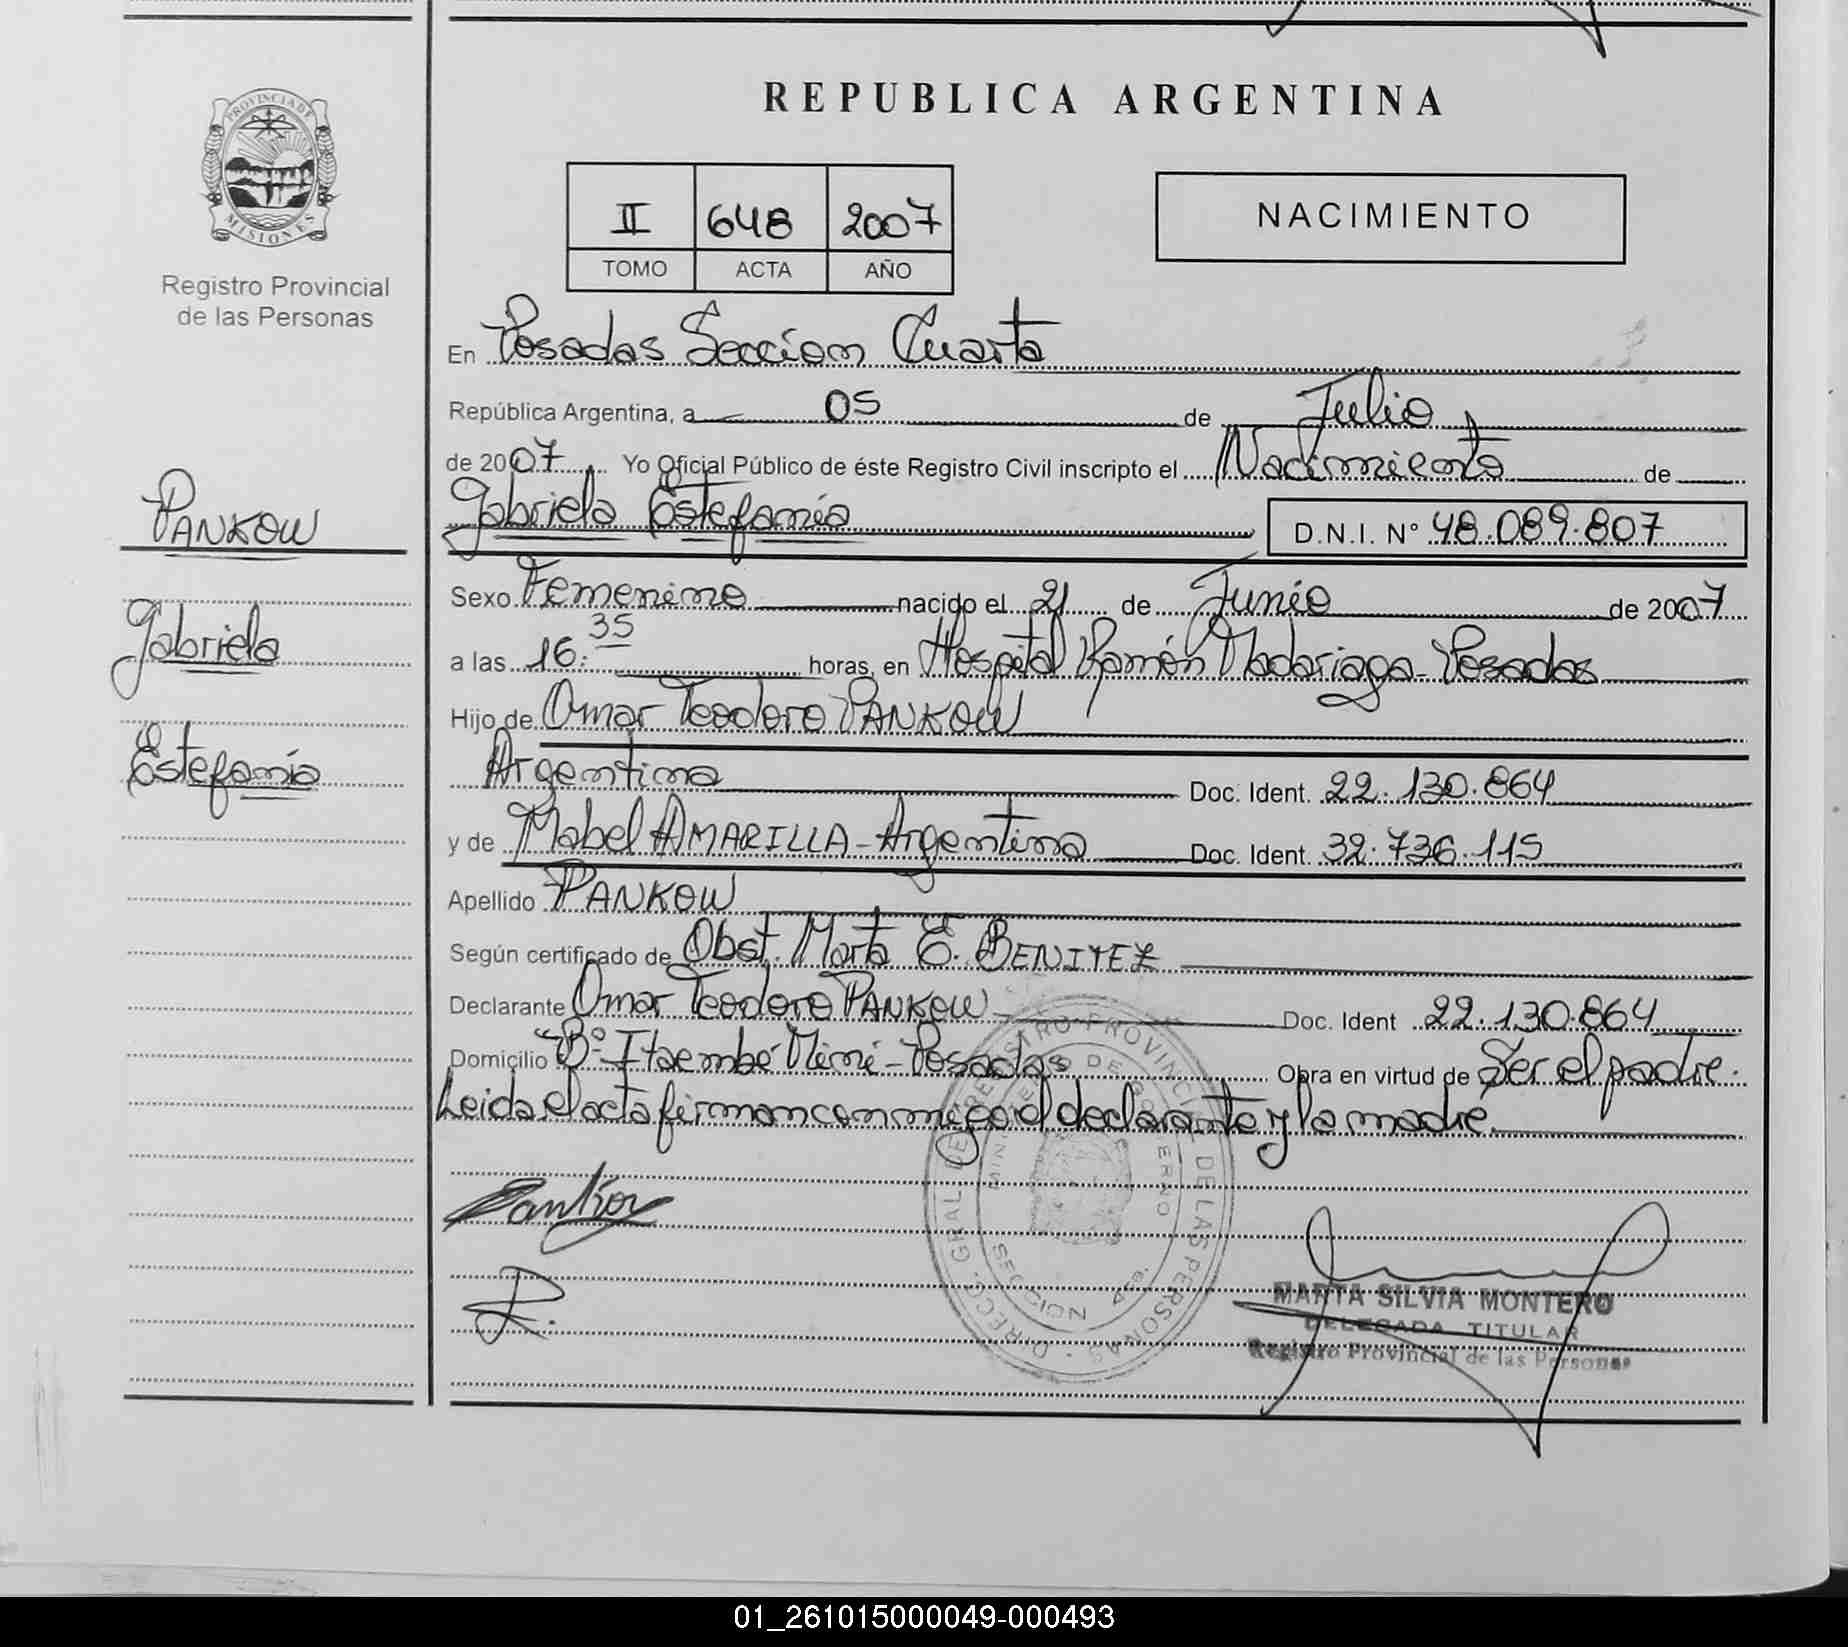 REPUBLICA ARGENTINA
PROVINCIA DE MISIONES
Registro Provincial
de las Personas
II 648 2007
TOMO ACTA AÑO
NACIMIENTO
En Posadas Seccion Cuarta
República Argentina, a 05 de Julio
de 2007. Yo Oficial Público de éste Registro Civil inscripto el Nacimiento de
Gabriela Estefanía D.N.I. N° 48.089.807
PANKOW
Gabriela
Estefanía
Sexo Femenino nacido el 21 de Junio de 2007
a las 16:35 horas, en Hospital Ramón Madariaga - Posadas
Hijo de Omar Teodoro PANKOW
Argentino Doc. Ident. 22.130.864
y de Mabel AMARILLA - Argentina Doc. Ident. 32.736.115
Apellido PANKOW
Según certificado de Obst. Marta E. BENITEZ
Declarante Omar Teodoro PANKOW Doc. Ident 22.130.864
Domicilio B° Itaembé Miní - Posadas Obra en virtud de Ser el padre.
Leida el acta firman conmigo el declarante y la madre.
Pankow
DIRECC. GRAL DE REGISTRO PROVINCIAL DE LAS PERSONAS
MINISTERIO DE GOBIERNO
SECCION 4ta.
MARTA SILVIA MONTERO
DELEGADA TITULAR
Registro Provincial de las Personas
01_261015000049-000493